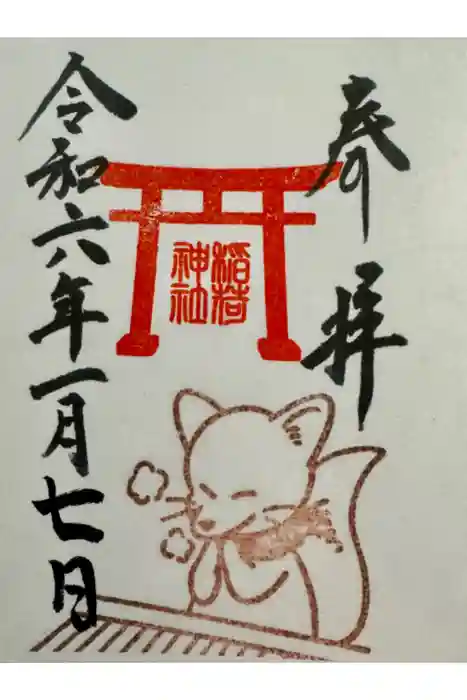 奉拝
稲荷
神社
令和六年一月七日